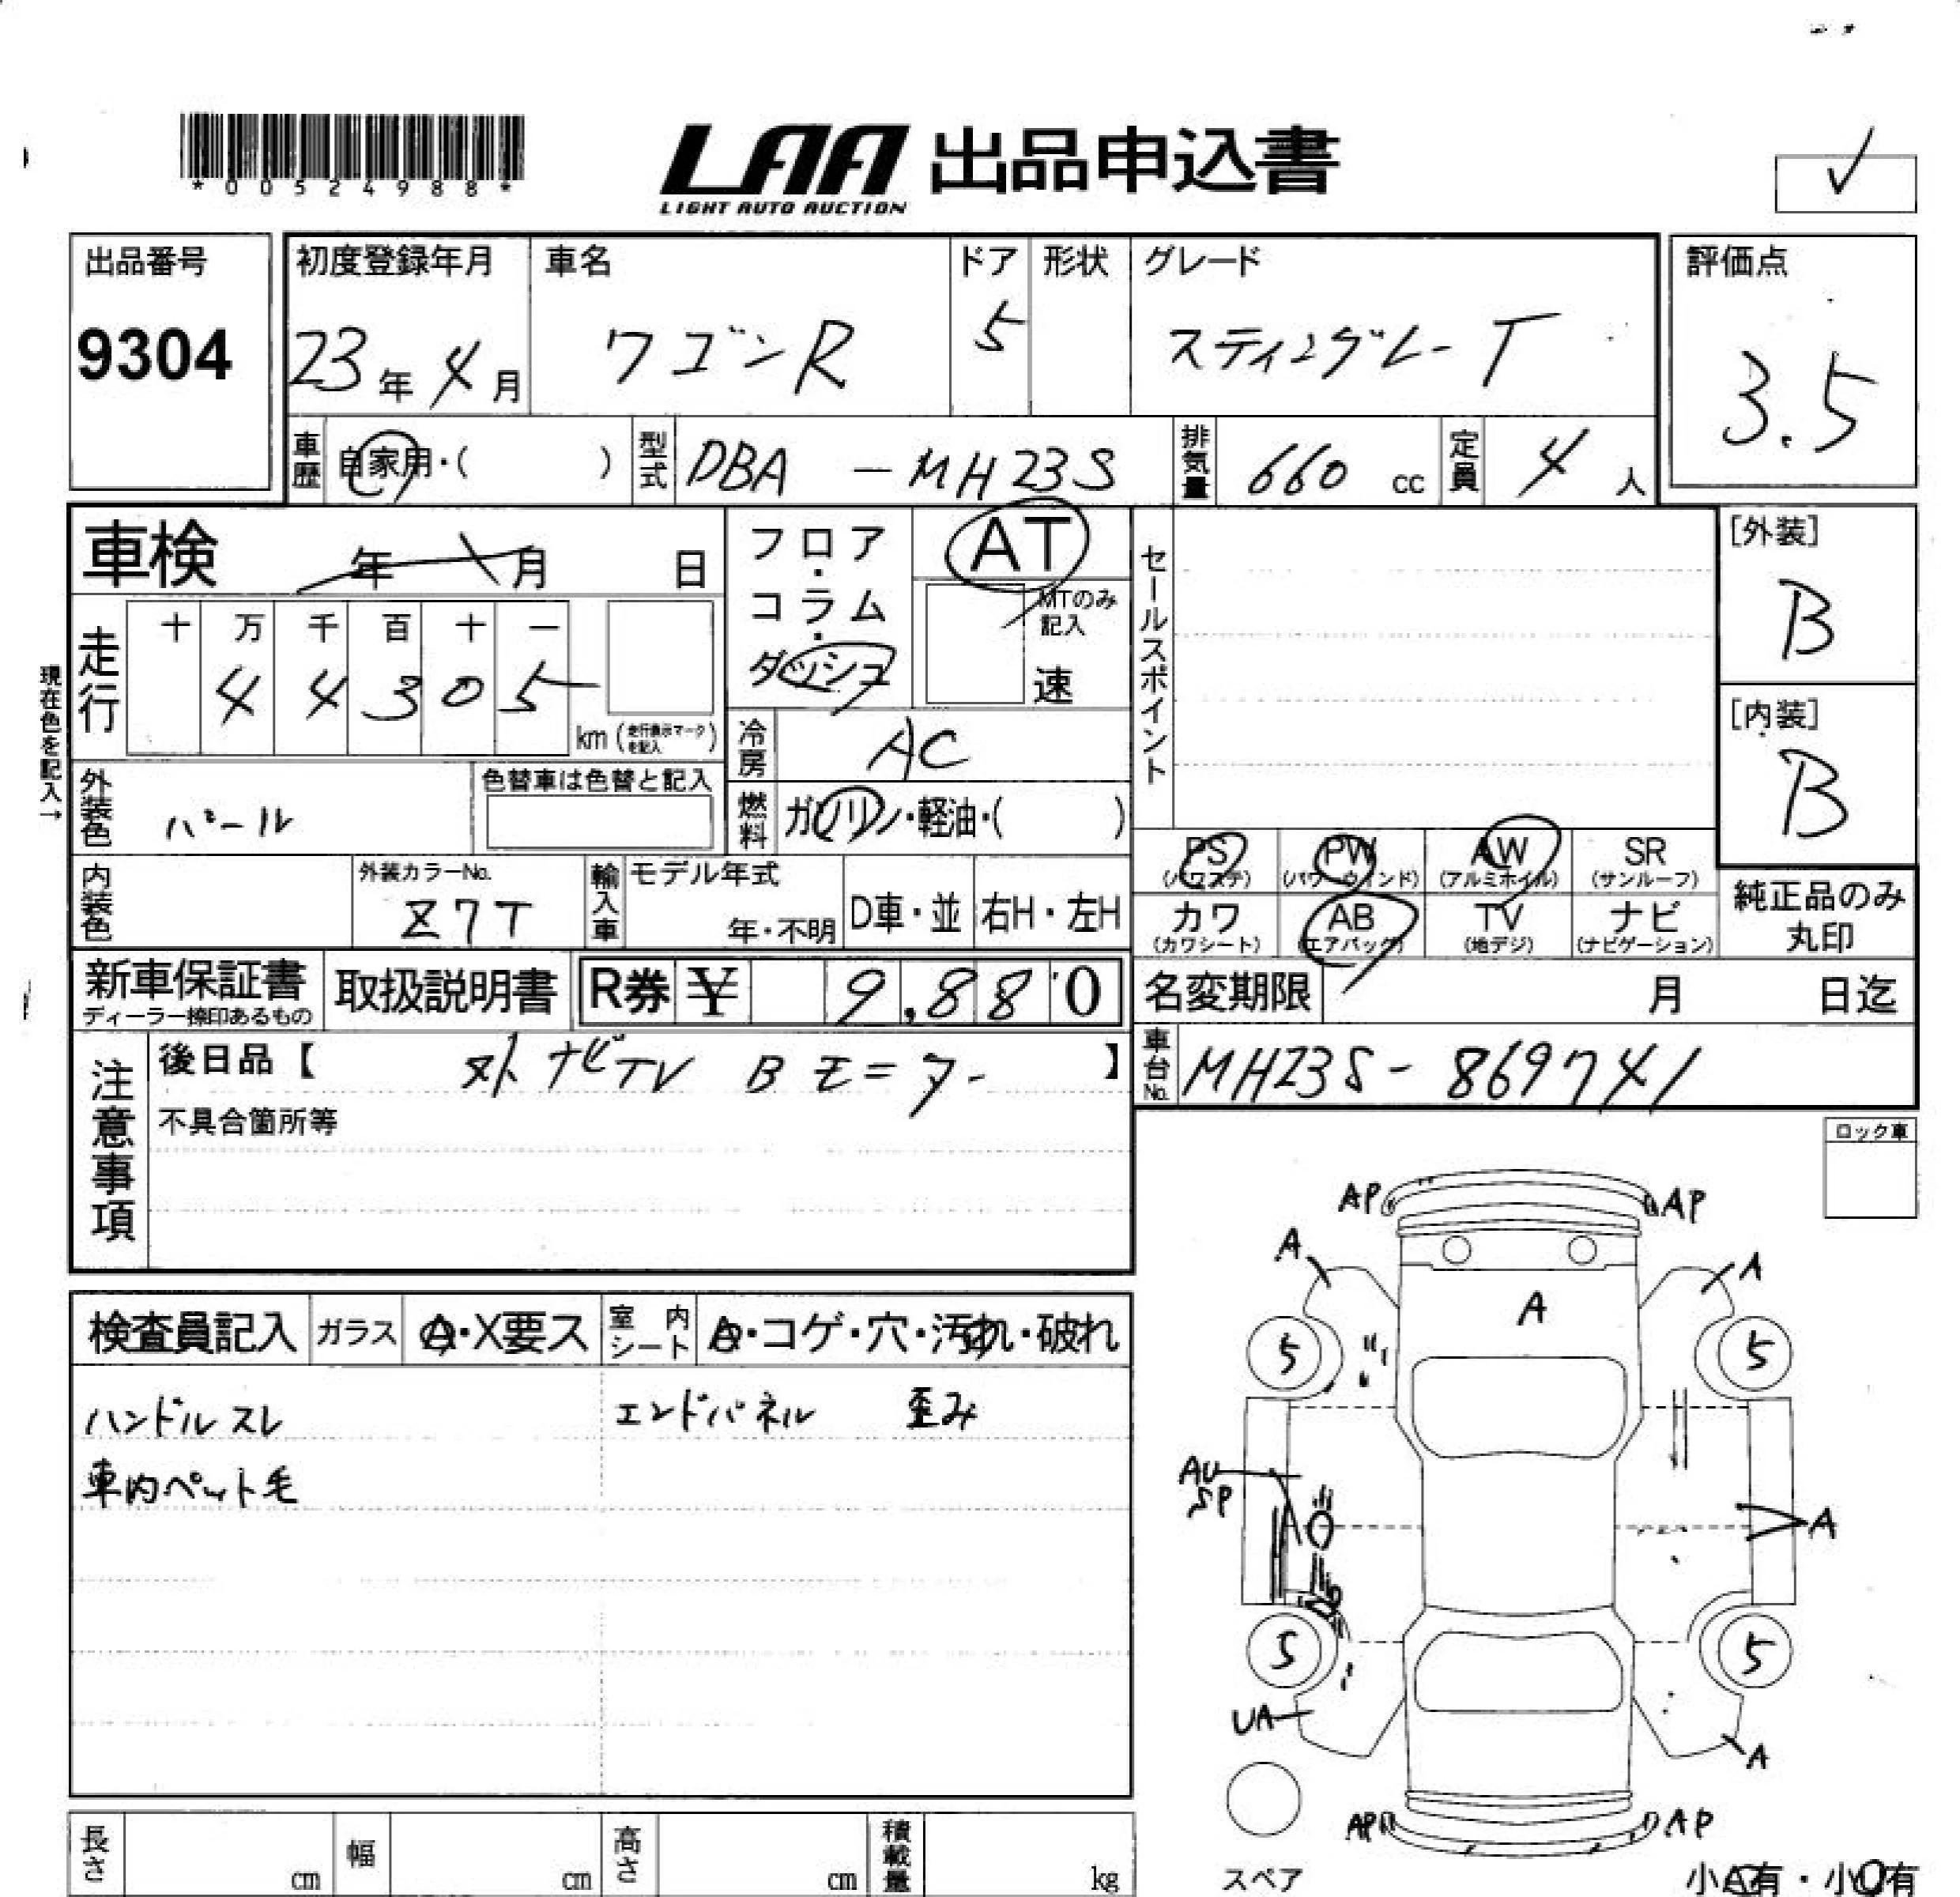 *00524988*
LAA 出品申込書
LIGHT AUTO AUCTION
出品番号
9304
初度登録年月
23年4月
車名
ワゴンR
ドア
5
形状
グレード
スティングレーT
評価点
3.5
車歴 自家用・( )
型式 DBA -MH23S
排気量 660 cc
定員 4 人
車検 年 月 日
フロア・コラム・ダッシュ
AT
MTのみ記入
速
セールスポイント
[外装]
B
[内装]
B
現在色を記入→
走行
十 万 千 百 十 一
4 4 3 0 5
km (走行表示マークを記入)
冷房 AC
外装色 パール
色替車は色替と記入
燃料 ガソリン・軽油・( )
PS (パワステ)
PW (パワーウィンド)
AW (アルミホイル)
SR (サンルーフ)
カワ (カワシート)
AB (エアバック)
TV (地デジ)
ナビ (ナビゲーション)
純正品のみ丸印
内装色
外装カラーNo.
Z7T
輸入車
モデル年式
年・不明
D車・並
右H・左H
新車保証書
ディーラー捺印あるもの
取扱説明書
R券 ¥ 9,880
名変期限 月 日迄
注意事項
後日品【 ナビTV Bモニター 】
不具合箇所等
車台No. MH23S-869741
ロック車
検査員記入
ガラス A・X要ス
室内シート A・コゲ・穴・汚れ・破れ
ハンドルスレ
エンドパネル 歪み
車内ペット毛
AP AP
A A
A
5 5
AU
SP
A
5 5
UA
A
AP AP
スペア
小A有・小U有
長さ cm
幅 cm
高さ cm
積載量 kg